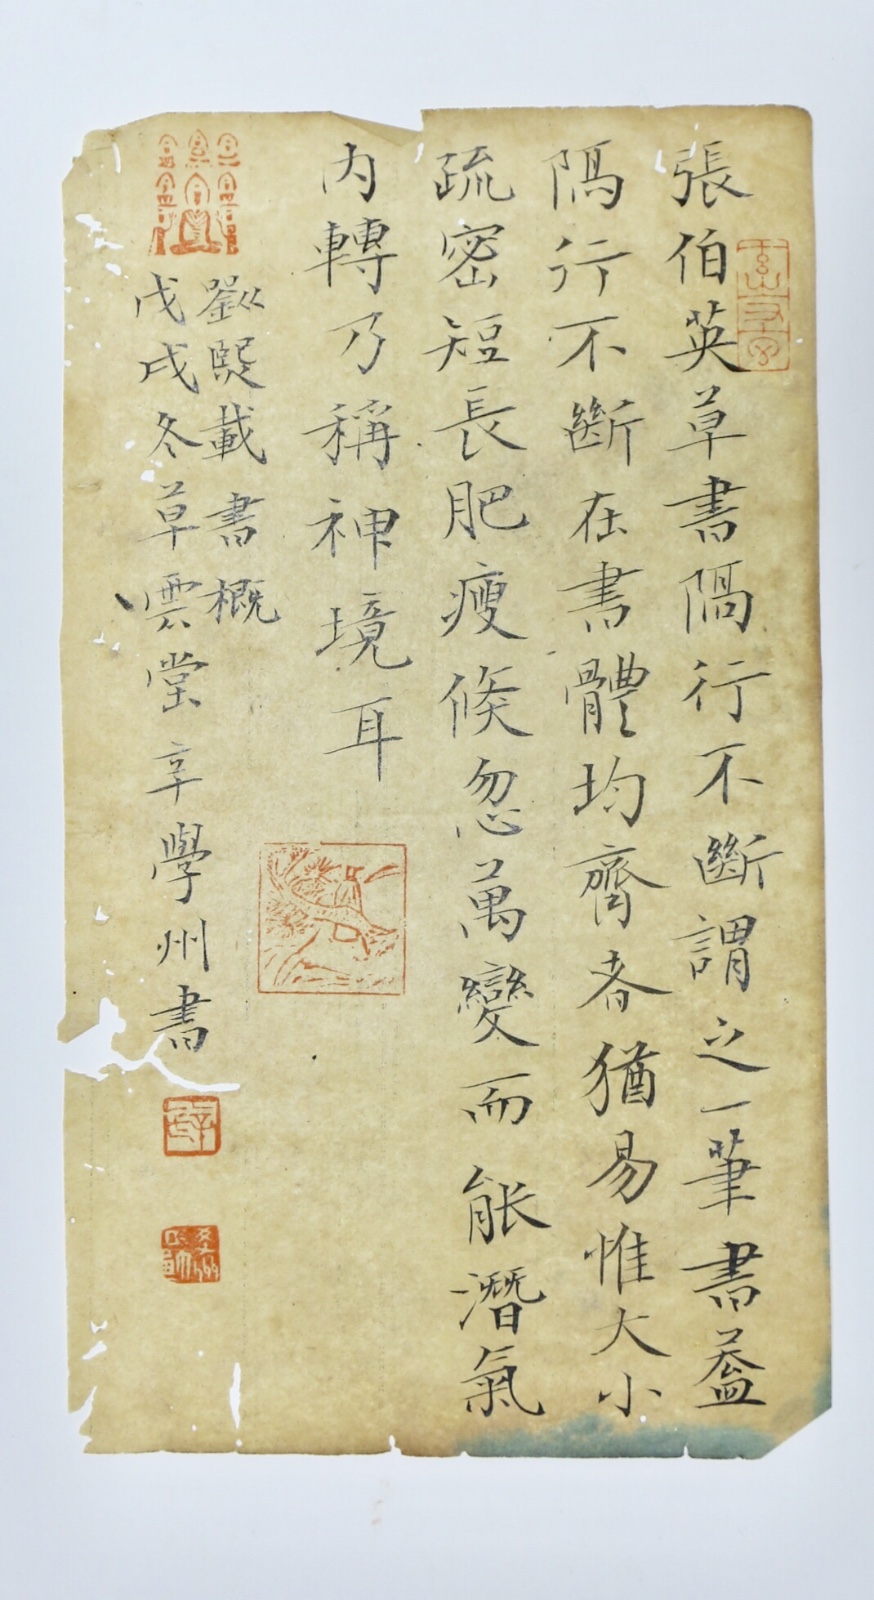 張伯英草書隔行不斷謂之一筆書蓋
隔行不斷在書體均齊者猶易惟大小
疏密短長肥瘦倏忽萬變而能潛氣
內轉乃稱神境耳
劉熙載書概
戊戌冬草雲堂辛學州書